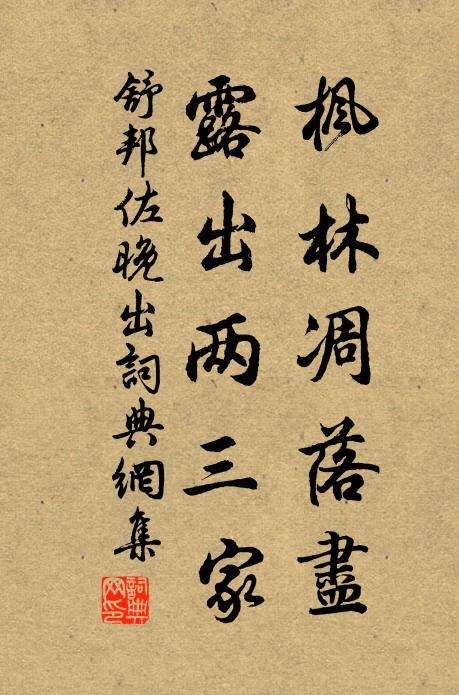 枫林凋落盡
露出两三家
舒邦佐晚出詞典網集
詞典网印